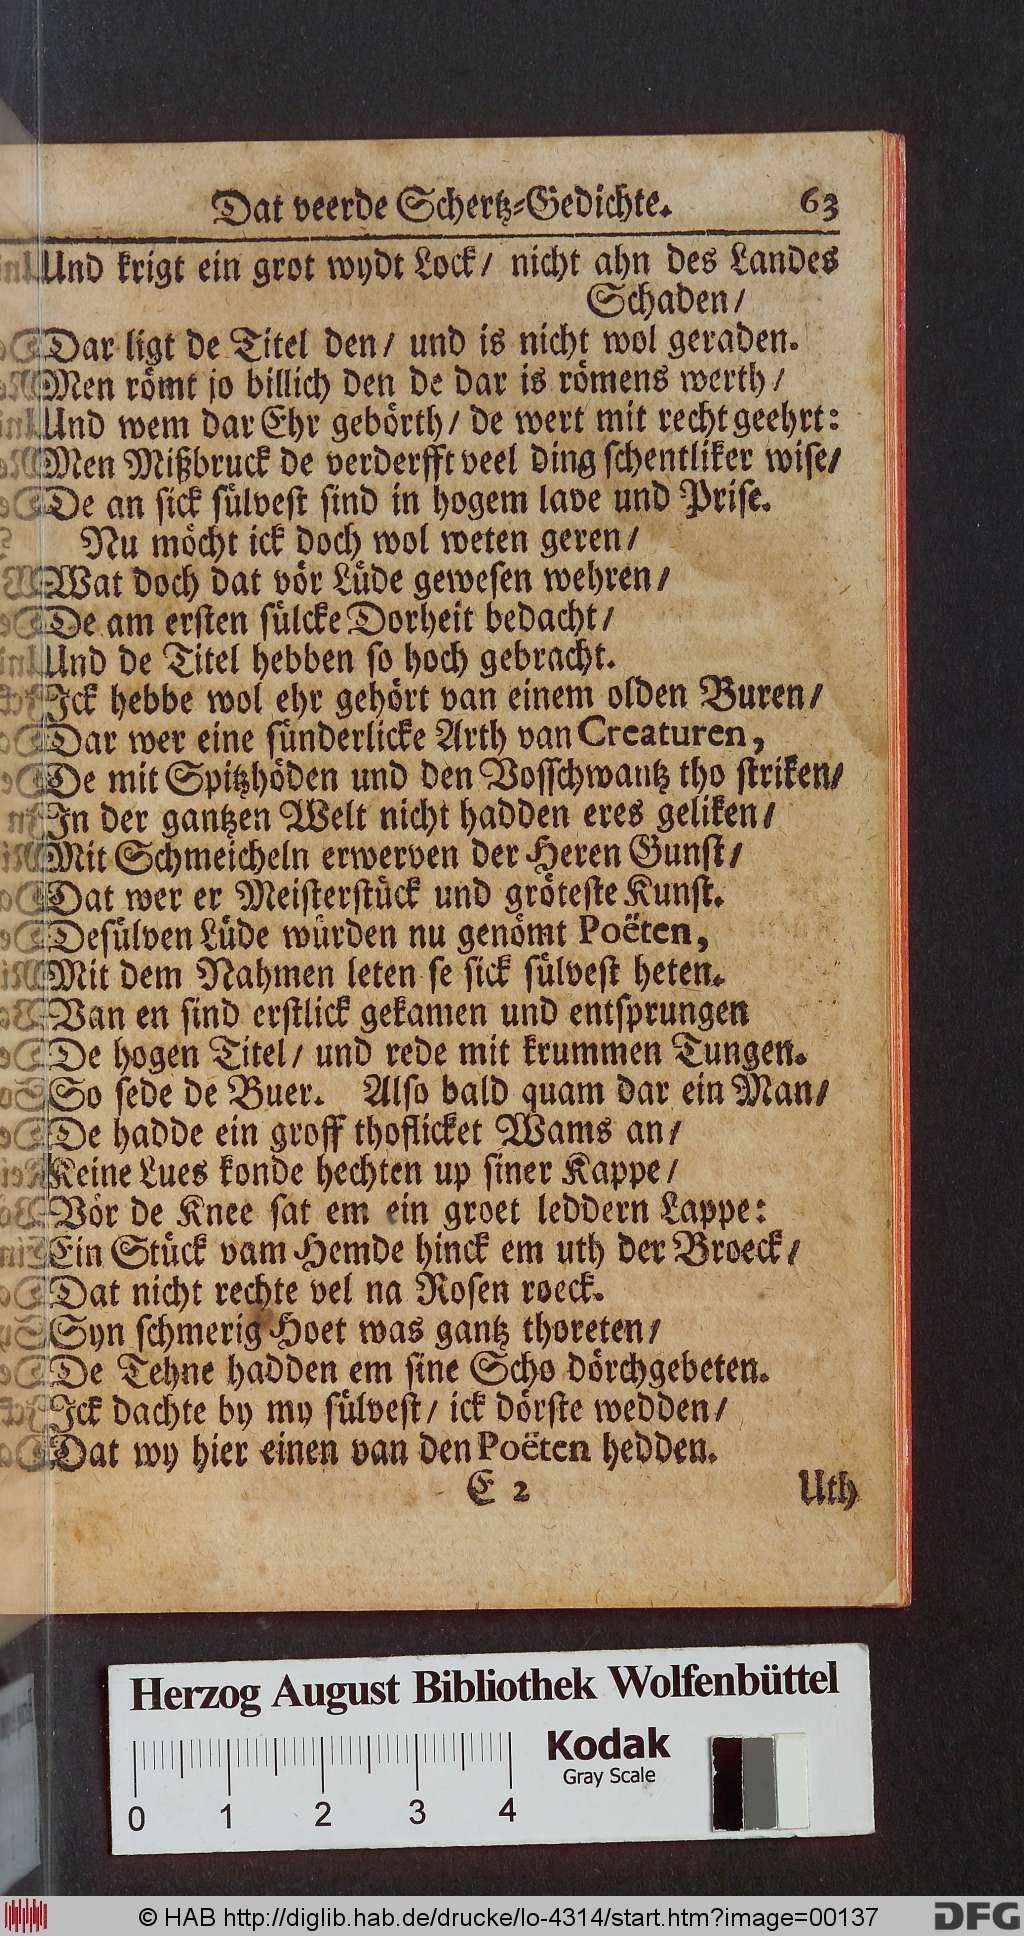 Dat veerde Schertz-Gedichte. 63
Und krigt ein grot wydt Lock/ nicht ahn des Landes
Schaden/
Dar ligt de Titel den/ und is nicht wol geraden.
Men römt jo billich den de dar is römens werth/
Und wem dar Ehr gebörth/ de wert mit recht geehrt:
Men Mißbruck de verderfft veel ding schentliker wise/
De an sick sülvest sind in hogem lave und Prise.
Nu möcht ick doch wol weten geren/
Wat doch dat vör Lüde gewesen wehren/
De am ersten sülcke Dorheit bedacht/
Und de Titel hebben so hoch gebracht.
Ick hebbe wol ehr gehört van einem olden Buren/
Dar wer eine sünderlicke Arth van Creaturen,
De mit Spitzhöden und den Vosschwantz tho striken/
In der gantzen Welt nicht hadden eres geliken/
Mit Schmeicheln erwerven der Heren Gunst/
Dat wer er Meisterstück und gröteste Kunst.
Desülven Lüde würden nu genömt Poëten,
Mit dem Nahmen leten se sick sülvest heten.
Van en sind erstlick gekamen und entsprungen
De hogen Titel/ und rede mit krummen Tungen.
So sede de Buer. Also bald quam dar ein Man/
De hadde ein groff thoflicket Wams an/
Keine Lues konde hechten up siner Kappe/
Vör de Knee sat em ein groet leddern Lappe:
Ein Stück vam Hemde hinck em uth der Broeck/
Dat nicht rechte vel na Rosen roeck.
Syn schmerig Hoet was gantz thoreten/
De Tehne hadden em sine Scho dörchgebeten.
Ick dachte by my sülvest/ ick dörste wedden/
Dat wy hier einen van den Poëten hedden.
E 2 Uth
Herzog August Bibliothek Wolfenbüttel
Kodak
Gray Scale
0 1 2 3 4
© HAB http://diglib.hab.de/drucke/lo-4314/start.htm?image=00137
DFG